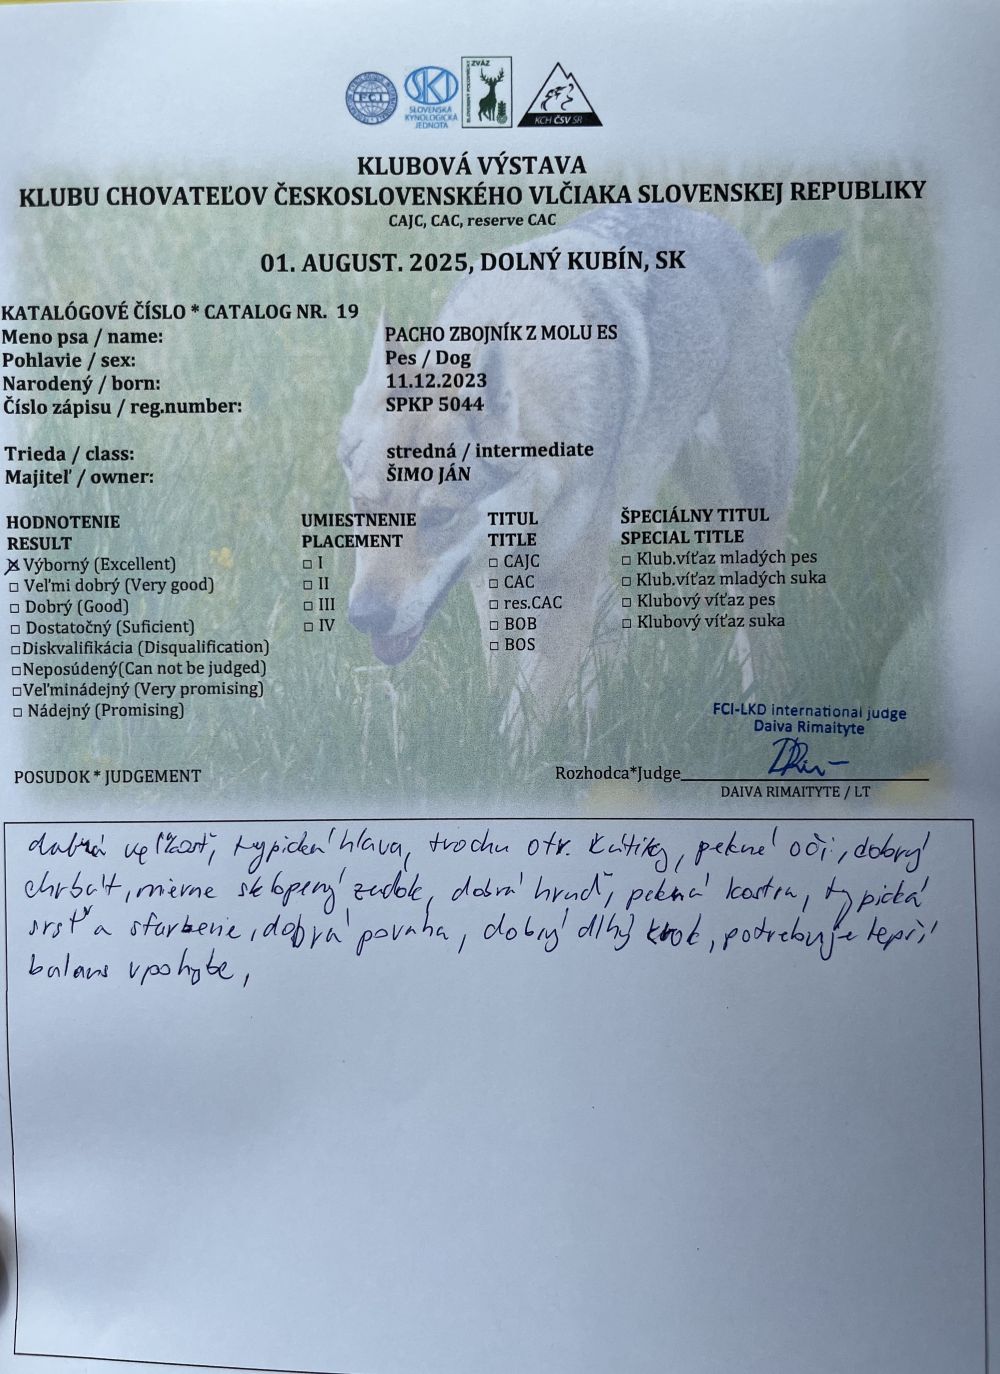 FCI
SKJ
SLOVENSKÁ
KYNOLOGICKÁ
JEDNOTA
SLOVENSKÝ POĽOVNÍCKY
ZVÄZ
KCH ČSV SR
KLUBOVÁ VÝSTAVA
KLUBU CHOVATEĽOV ČESKOSLOVENSKÉHO VLČIAKA SLOVENSKEJ REPUBLIKY
CAJC, CAC, reserve CAC
01. AUGUST. 2025, DOLNÝ KUBÍN, SK
KATALÓGOVÉ ČÍSLO * CATALOG NR. 19
Meno psa / name: PACHO ZBOJNÍK Z MOLU ES
Pohlavie / sex: Pes / Dog
Narodený / born: 11.12.2023
Číslo zápisu / reg.number: SPKP 5044
Trieda / class: stredná / intermediate
Majiteľ / owner: ŠIMO JÁN
HODNOTENIE UMIESTNENIE TITUL ŠPECIÁLNY TITUL
RESULT PLACEMENT TITLE SPECIAL TITLE
☒ Výborný (Excellent) □ I □ CAJC □ Klub.víťaz mladých pes
□ Veľmi dobrý (Very good) □ II □ CAC □ Klub.víťaz mladých suka
□ Dobrý (Good) □ III □ res.CAC □ Klubový víťaz pes
□ Dostatočný (Suficient) □ IV □ BOB □ Klubový víťaz suka
□ Diskvalifikácia (Disqualification) □ BOS
□ Neposúdený(Can not be judged)
□ Veľminádejný (Very promising)
□ Nádejný (Promising)
FCI-LKD international judge
Daiva Rimaityte
POSUDOK * JUDGEMENT Rozhodca*Judge
DAIVA RIMAITYTE / LT
dobrá veľkosť, typická hlava, trochu otr. kútiky, pekné oči, dobrý
chrbát, mierne sklopený zadok, dobrá hruď, pekná kostra, typická
srsť a sfarbenie, dobrá povaha, dobrý dlhý krok, potrebuje lepší
balans v pohybe,